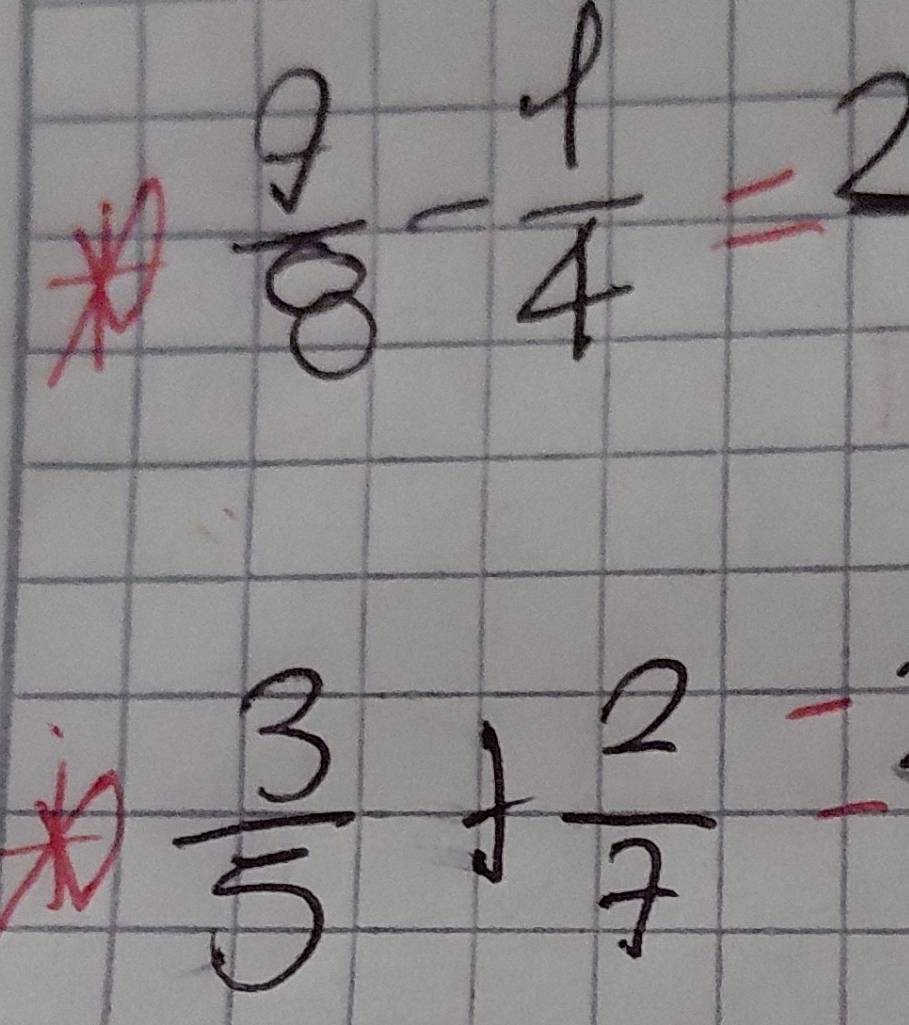 * 9/8 - 1/4 = 2
* 3/5 + 2/7 =